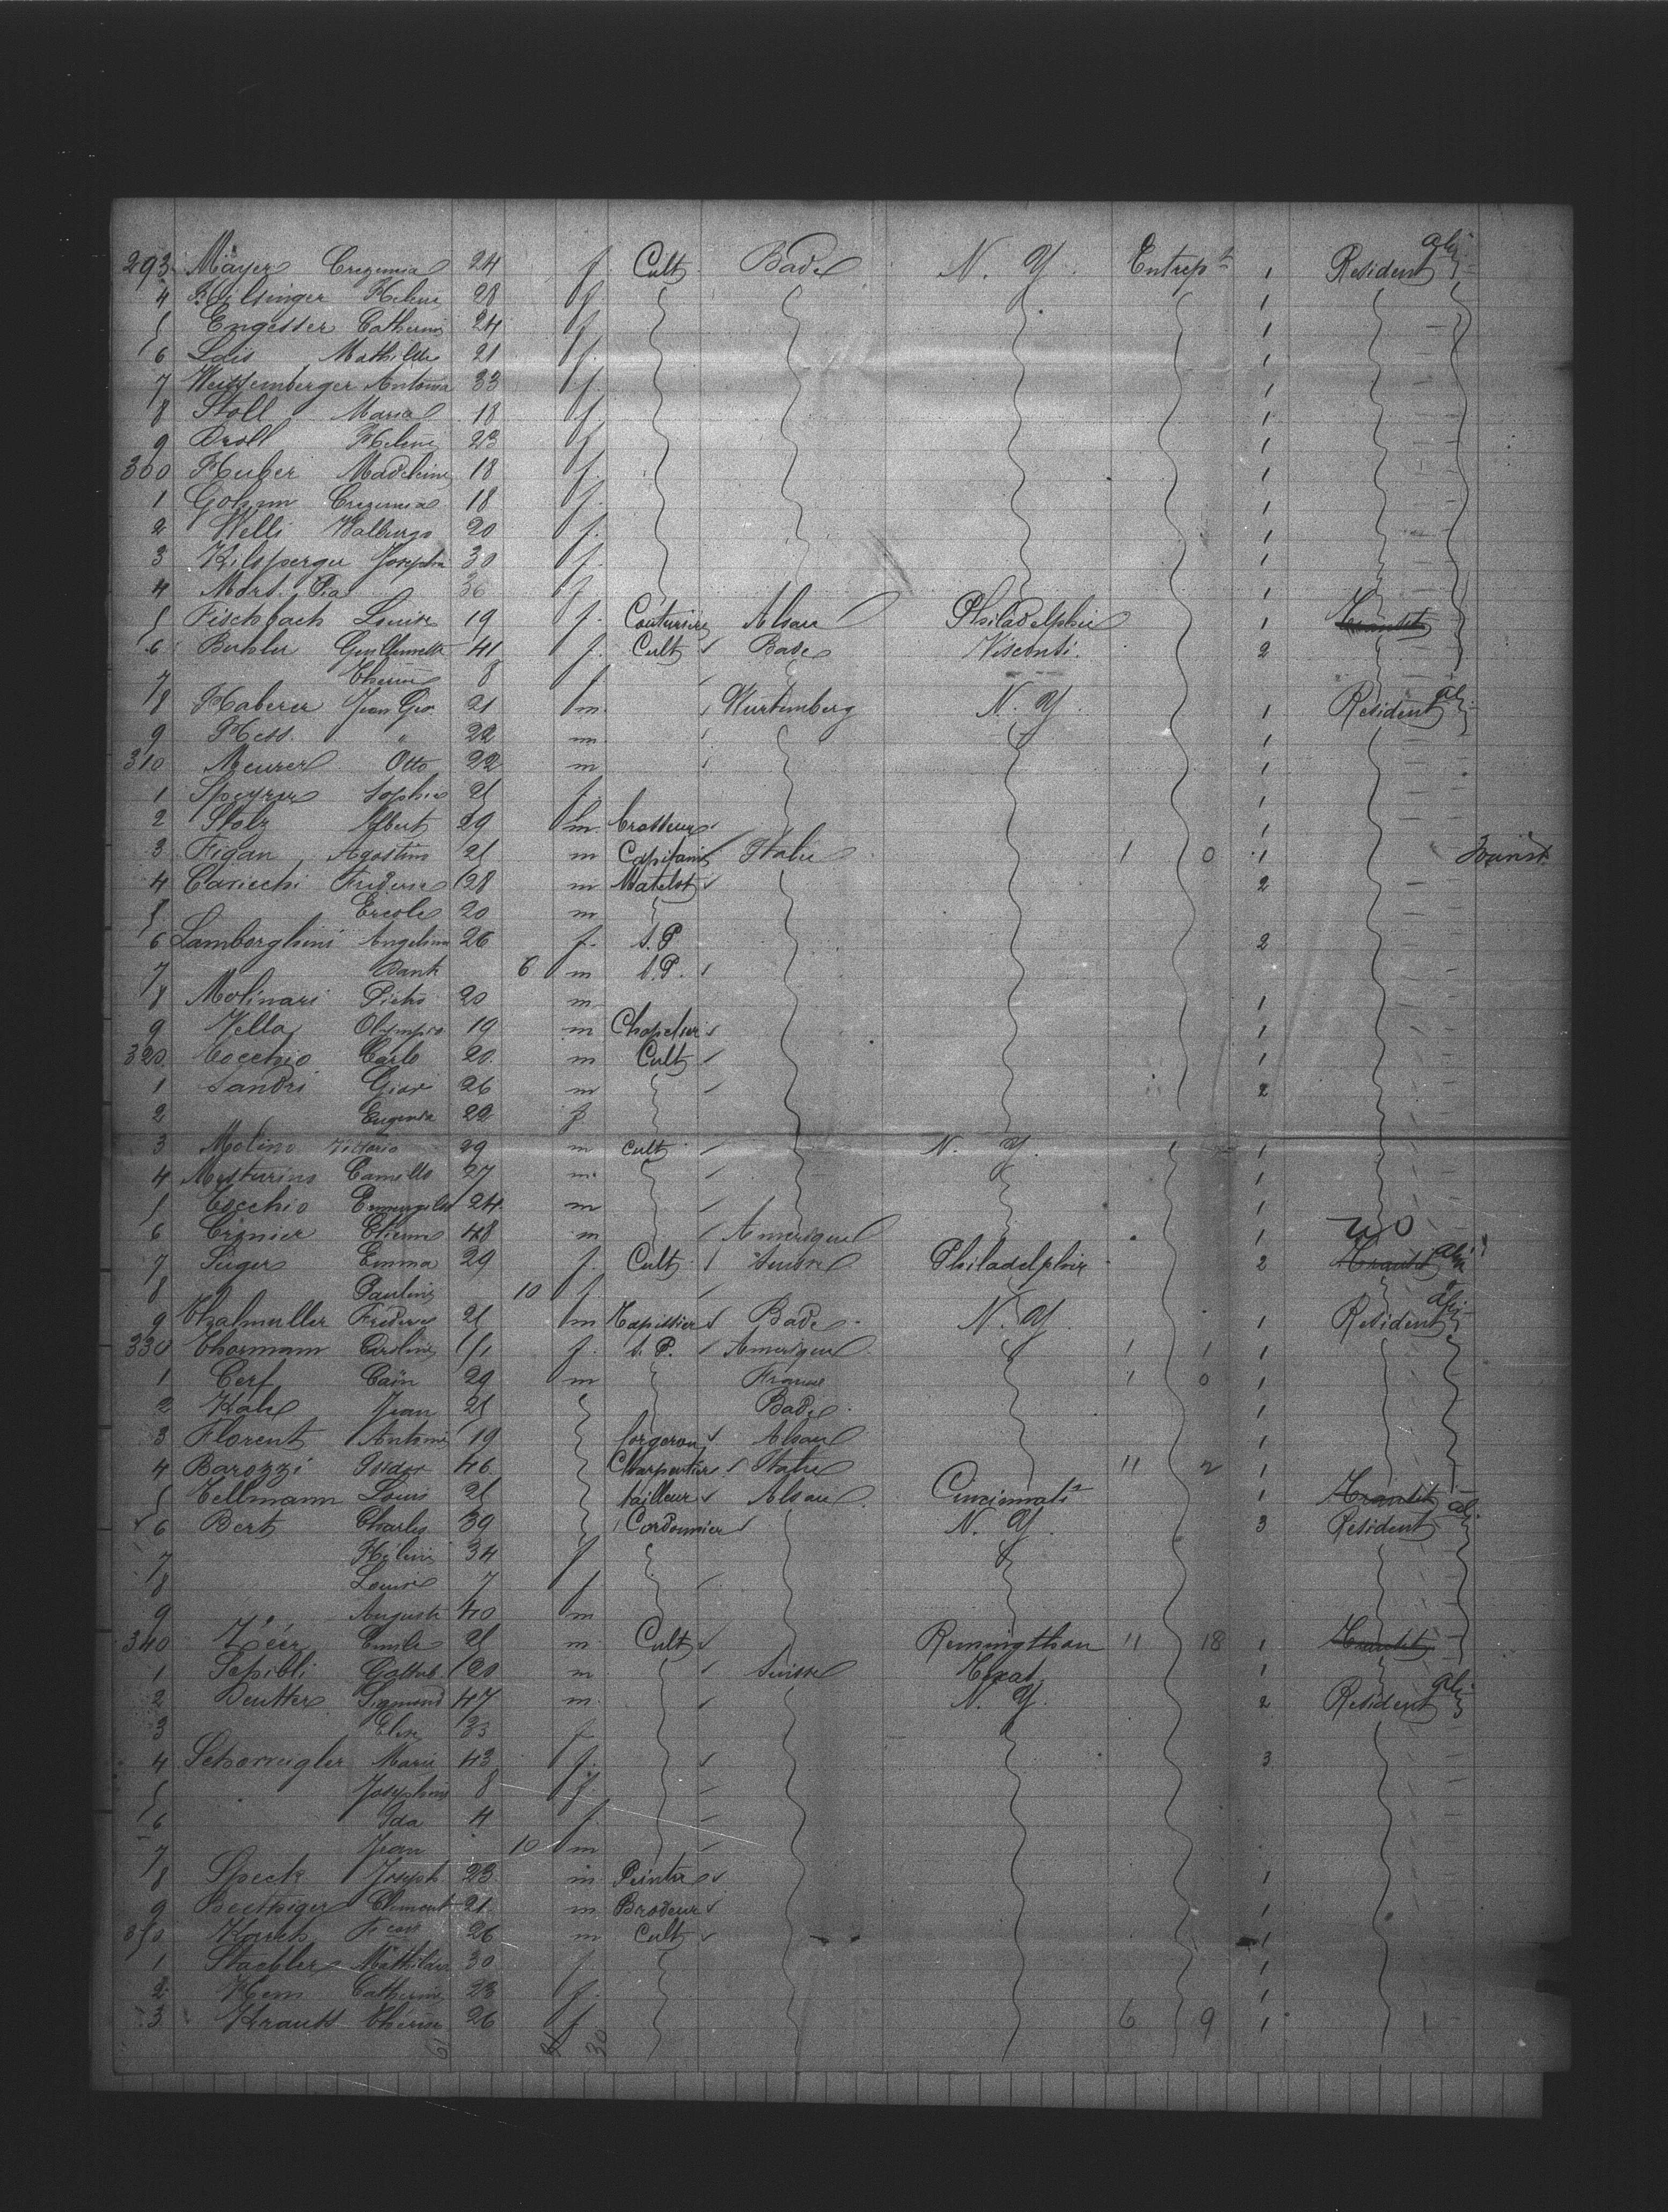 293 Mayer Crezemia 24 f Cult Bade N. Y. Entrept 1 Resident ali
4 Hilsinger Helene 28 f 1
5 Engesser Catherine 24 f 1
6 Lais Mathilde 21 f 1
7 Weissemberger Antonia 33 f 1
8 Stoll Maria 18 f 1
9 Droll Helene 23 f 1
300 Huber Madeleine 18 f 1
1 Gohmm Crezemia 18 f 1
2 Welli Walburga 20 f 1
3 Hilsperger Josephin 30 f 1
4 Mors Pia 36 f 1
5 Fischbach Louise 19 f Couturière Alsace Philadelphie 1 Transit
6 Buhler Guillumette 41 f Cult Bade Visconti 2
7 Therese 8 f
8 Haberer Jean Geo 21 m Wurtemberg N. Y. 1 Resident ali
9 Hess " 22 m 1
310 Meurer Otto 22 m 1
1 Speyrer Sophie 25 f 1
2 Stolz Albert 29 m Brasseur 1
3 Figan Agostino 25 m Capitaine Italie 1 0 1 Transit
4 Cariechi Frederic 28 m Matelot 2
5 Ercole 20 m
6 Lamborghini Angelina 26 f S.P. 2
7 Dante 6 m S.P.
8 Molinari Pietro 20 m 1
9 Vella Olympio 19 m Chapelier 1
320 Cocchio Carlo 20 m Cult 1
1 Sandri Giov 26 m 2
2 Eugenia 22 f
3 Molino Vittorio 29 m Cult N. Y. 1
4 Musturino Camillo 27 m 1
5 Cocchio Ermengildo 24 m 1
6 Crignier Etienne 48 m Amerique 1
7 Suger Emma 29 f Cult Suisse Philadelphie 2 Transit
8 Pauline 10 f
9 Thalmuller Frederic 25 m Tapissier Bade N. Y. 1 Resident ali
330 Thormann Caroline 51 f S.P. Amerique 1 1 1
1 Cerf Caïn 29 m France 1 0 1
2 Hahl Jean 25 Bade 1
3 Florent Antoine 19 forgeron Alsace 1
4 Barozzi Isidor 46 Charpentier Italie 11 2 1
5 Tellmann Louis 25 tailleur Alsace Cincinnati 1 Transit
6 Bert Charles 39 Cordonnier N. Y. 3 Resident
7 Hélène 34 f
8 Louise 7 f
9 Auguste 40 m
340 Zéer Emile 25 m Cult Remingthon 11 18 1 Transit
1 Schibli Gottlieb 20 m Suisse Texas 1
2 Deutter Sigmond 47 m N. Y. 2 Resident ali
3 Elise 33 f
4 Schonnigler Marie 43 f 3
5 Josephine 8 f
6 Ida 4 f
7 Jean 10 m
8 Speck Joseph 23 m Peintre 1
9 Clement 21 m Brodeur 1
350 26 m Cult 1
1 Staebler Mathilde 30 f 1
2 Hem Catherine 23 f 1
3 Krauss Therese 26 f 6 9 1